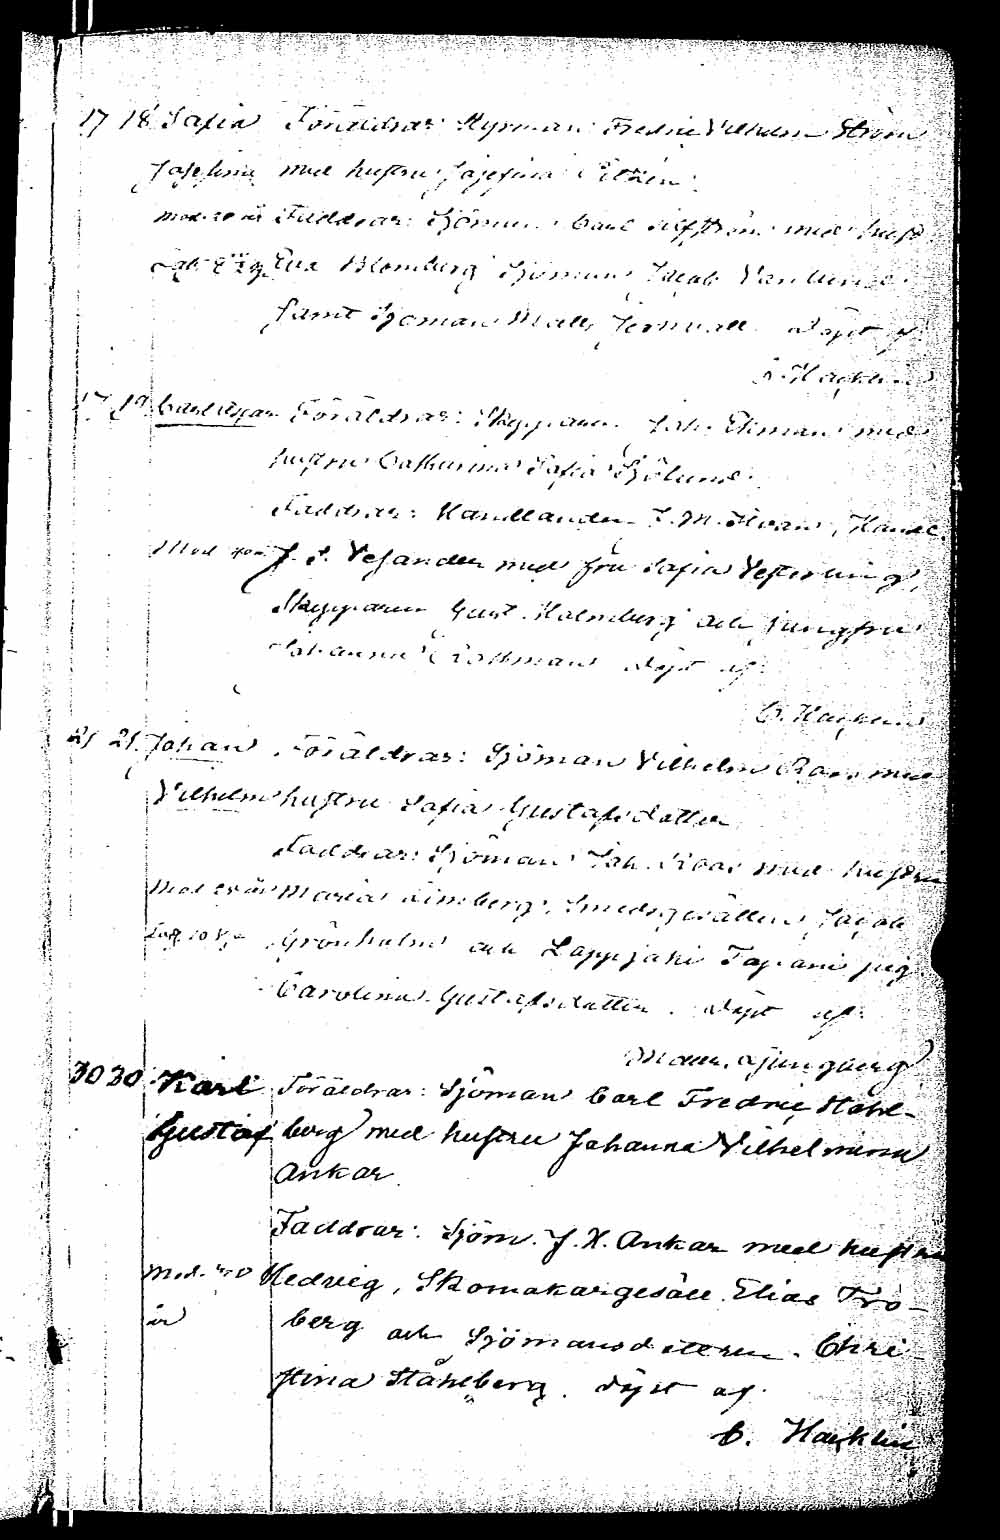 17 18 Sofia Föräldrar: Styrman Fredric Vilhelm Ström
Josefina med hustru Josefina
Mod. år Faddrar: Sjöman Carl med hust
Eva Blomberg Sjöman Jacob
samt Sjöman Matts Jernvall. Döpt af
Hacklin
17 19 Carl Oskar Föräldrar: Skepparen Joh. Ekman med
hustru Catharina Sofia Sjölund.
Faddrar: Handlanden J. M. Handl.
Mod J. S. Vesander med fru Sofia
Skepparen Gust. Holmberg och jungfru
Johanna Döpt af
C. Hacklin
21 21. Johan Föräldrar: Sjöman Vilhelm Roos med
Vilhelm hustru Sofia Gustafsdotter
Faddrar: Sjöman Joh. Roos med hustru
Mod år Maria Limberg, Smedsgesällen Jacob
Grönholm och Lappjaki Tapani pig.
Carolina Gustafsdotter. Döpt af
Ljungberg
30 30 Karl Föräldrar: Sjöman Carl Fredric Stohl-
Gustaf berg med hustru Johanna Vilhelmina
Ankar.
Faddrar: Sjöm. J. H. Ankar med hustru
Mod. 40 Hedvig, Skomakargesäll Elias Fro-
år berg och Sjömansdottren Chri-
stina Ståhlberg. Döpt af
C. Hacklin